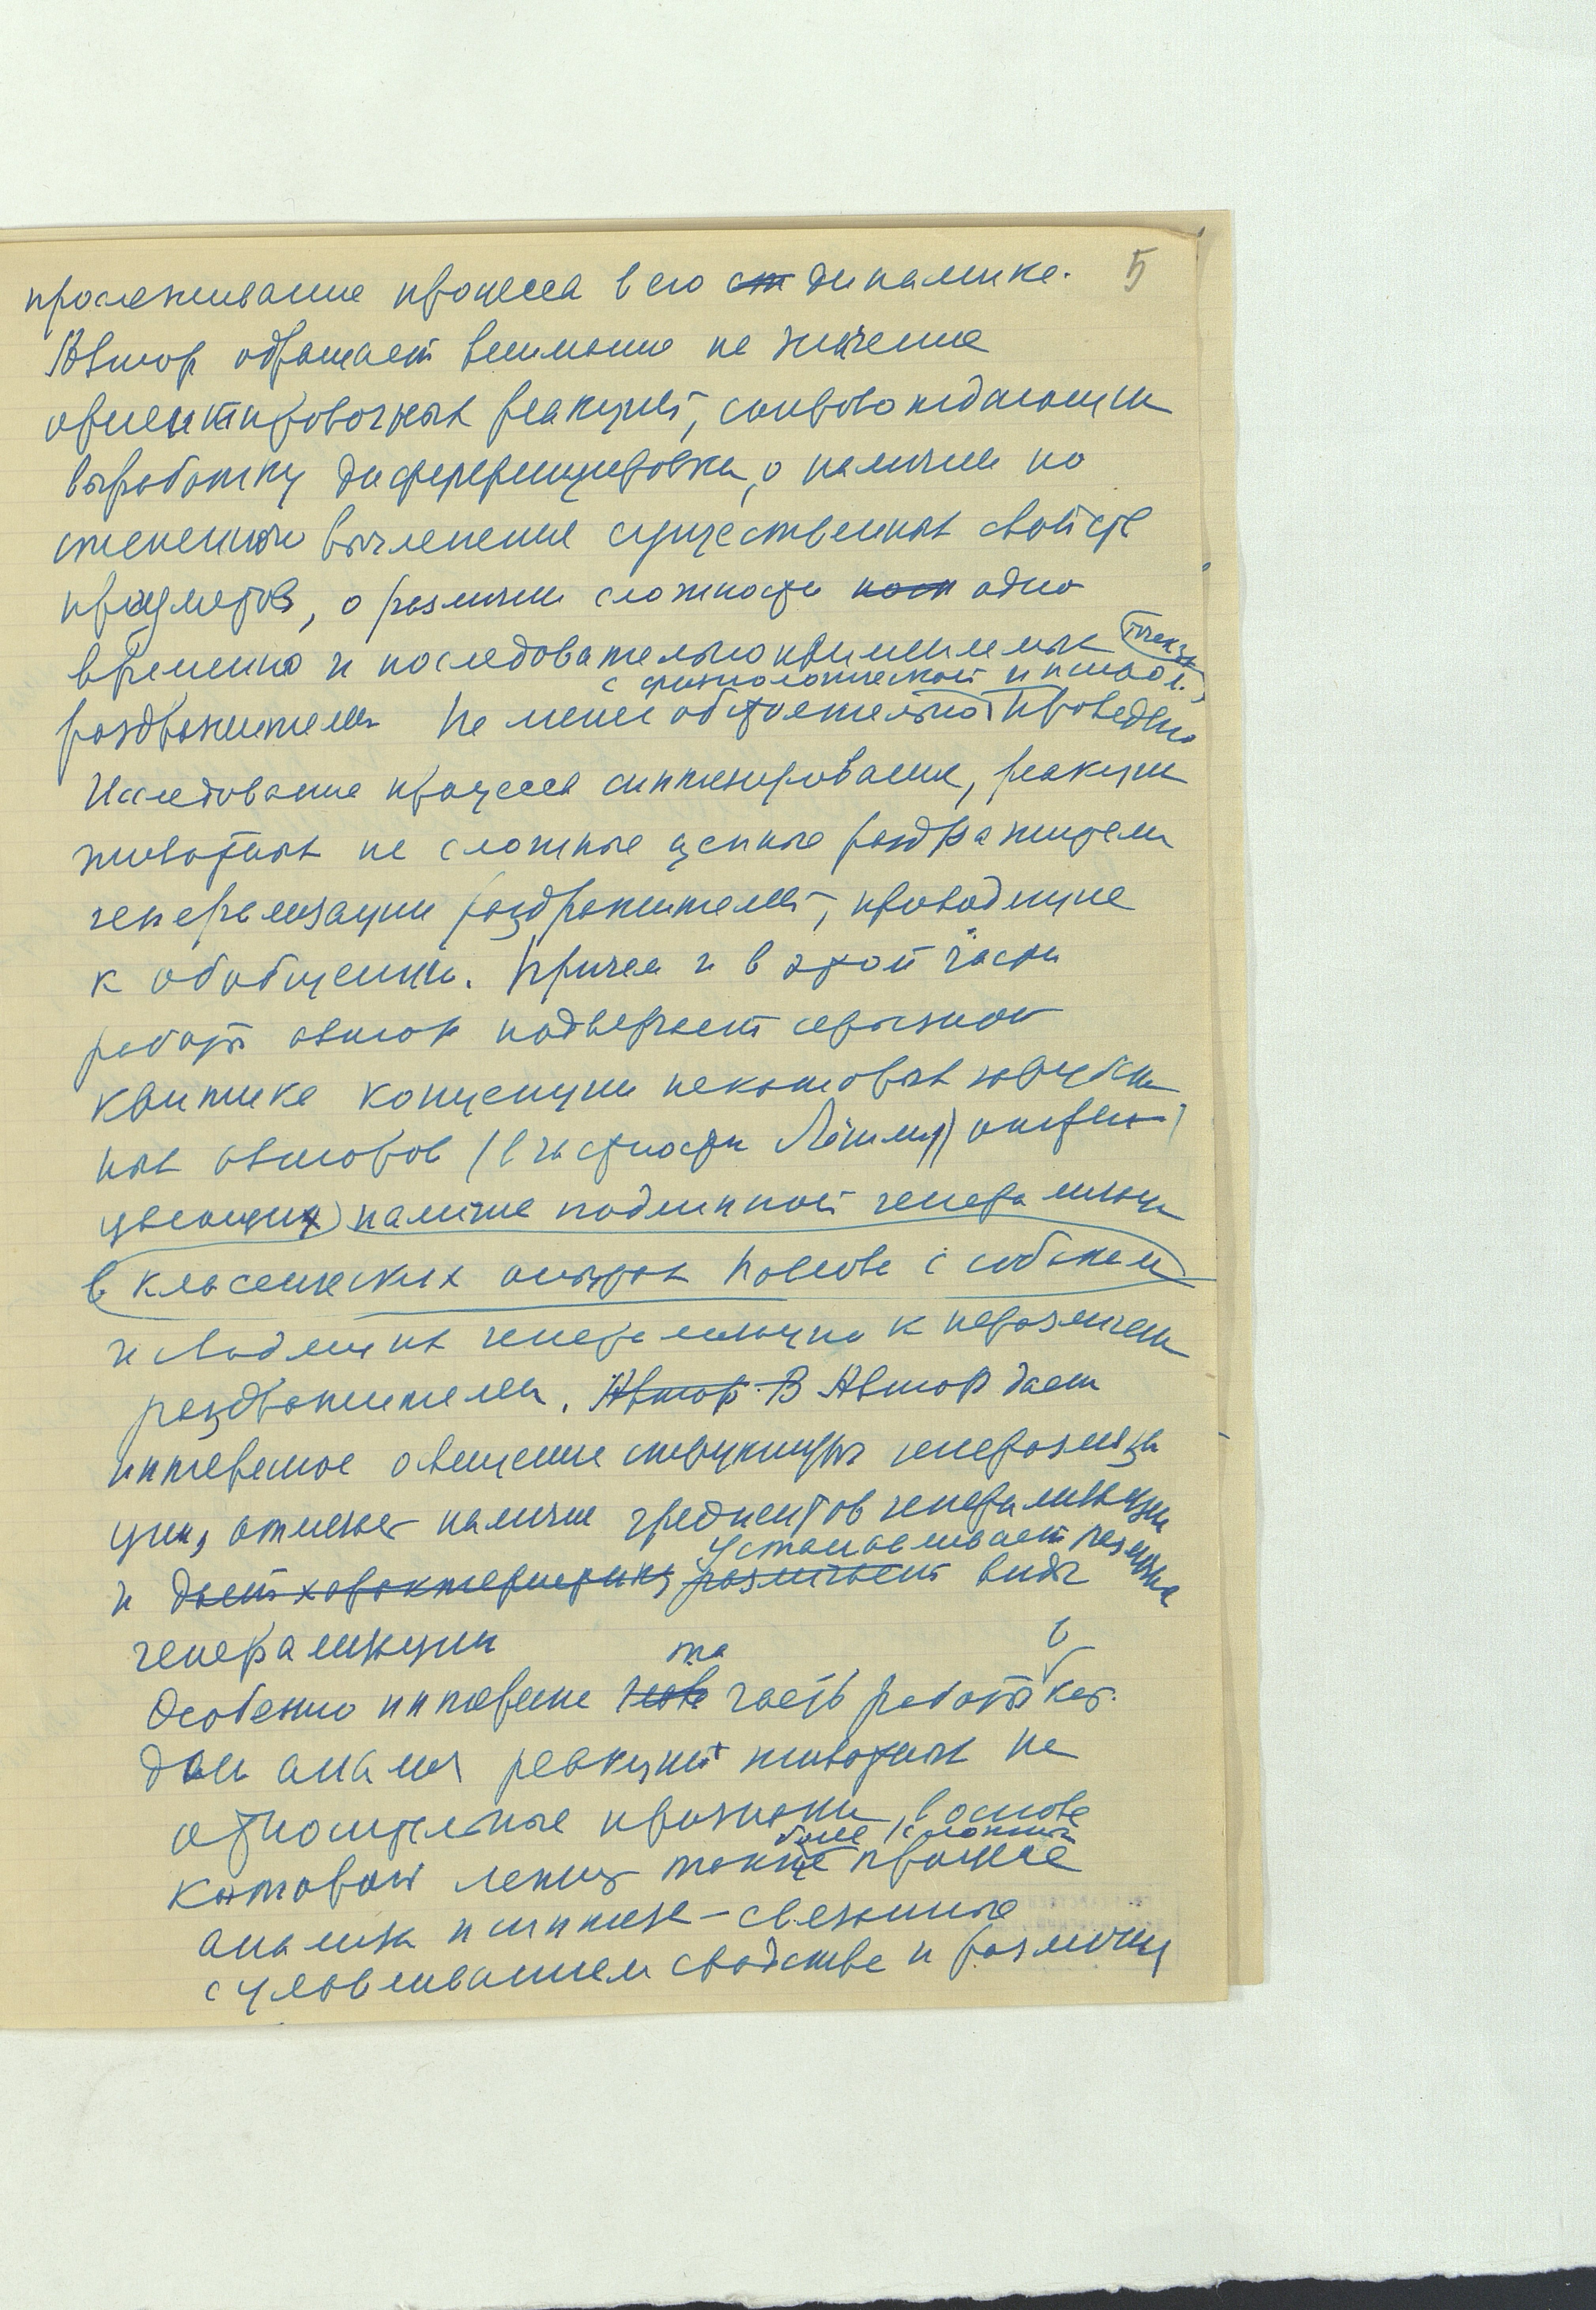 5
прослеживание процесса в его ст динамике.
Автор обращает внимание на значение
ориентировочных реакций, сопровождающих
выработку диференцировки, о наличии по
степенного вычленения существенных свойств
предметов, о различии сложности посл одно
временно и последовательно применяемых
с физиологической и психол. точек зр
раздражителей Не менее обстоятельно проведено
Исследование процесса синтезирования, реакции
животных на сложные цепные раздражители
генерализации раздражителей, приводящие
к обобщению. Причем и в этой части
работы автор подвергает серьезной
критике концепции некоторых зарубеж
ных авторов (в частности Лешли) отри
цающих наличие подлинной генерализации
в классических опытах Павлова с собаками
и сводящих генерализацию к неразличению
раздражителей. Автор В Автор дает
интересное освещение структуры генерализа
ции, отмечает наличие градиентов генерализации
устанавливает различные
и дает характеристику различает виды
генерализации
та в
Особенно интересна часть работы кот.
дан анализ реакций животных на
относительные признаки, в основе
более сложные
которых лежит также процессе
анализа и синтеза – связанные
с улавливанием сходства и различия